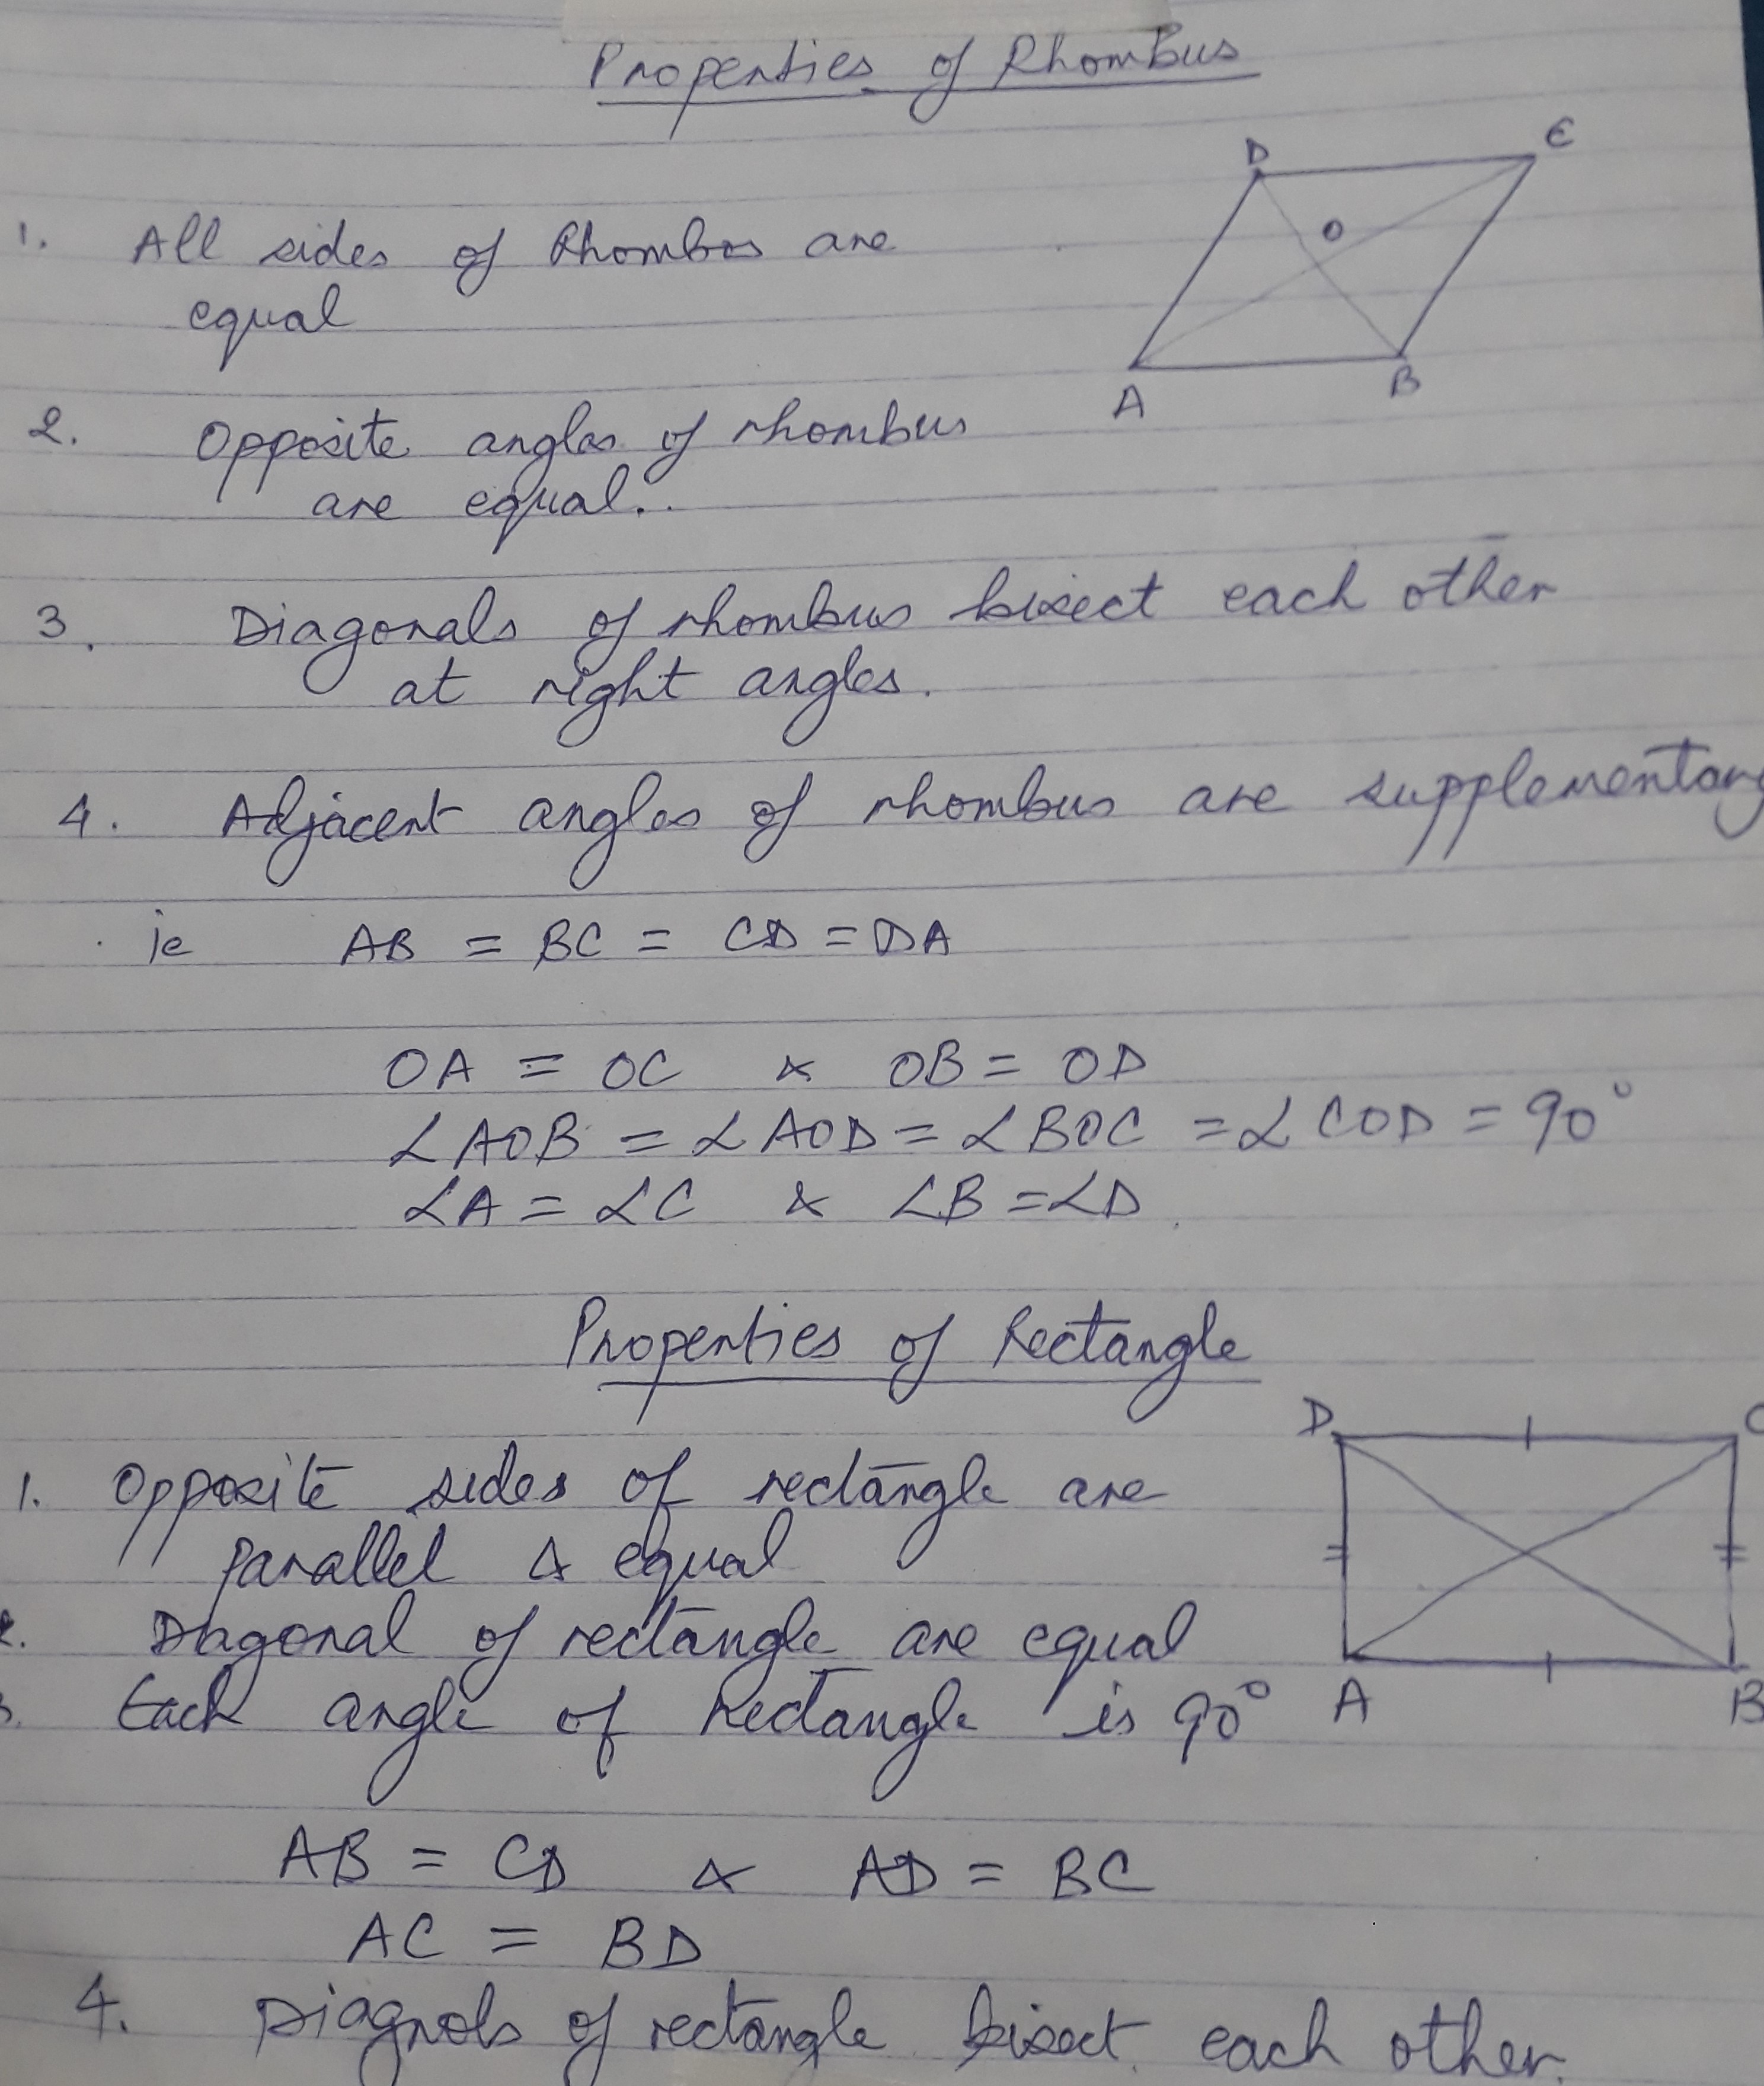 Properties of Rhombus
D C
O
1. All sides of Rhombus are
equal
A B
2. Opposite angles of rhombus
are equal.
3. Diagonals of rhombus bisect each other
at right angles.
4. Adjacent angles of rhombus are supplementary
ie AB = BC = CD = DA
OA = OC & OB = OD
∠AOB = ∠AOD = ∠BOC = ∠COD = 90°
∠A = ∠C & ∠B = ∠D
Properties of Rectangle
D C
1. Opposite sides of rectangle are
parallel & equal
2. Diagonal of rectangle are equal
3. Each angle of Rectangle is 90°
A B
AB = CD & AD = BC
AC = BD
4. Diagnols of rectangle bisect each other.